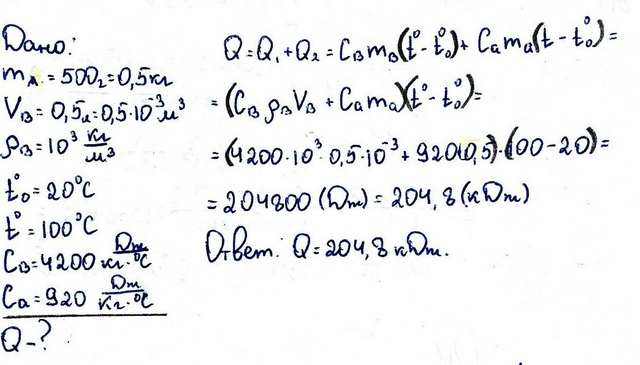 Дано:
mА = 500г = 0,5кг
VВ = 0,5л = 0,5·10⁻³м³
ρВ = 10³ кг/м³
t₀° = 20°C
t° = 100°C
CВ = 4200 Дж/кг·°C
Cа = 920 Дж/кг·°C
Q – ?
Q = Q₁ + Q₂ = CВ mВ (t° - t₀°) + Cа mа (t - t₀°) =
= (CВ ρВ VВ + Cа mа)(t° - t₀°) =
= (4200·10³·0,5·10⁻³ + 920·0,5)·(100-20) =
= 204800 (Дж) = 204,8 (кДж)
Ответ: Q = 204,8 кДж.